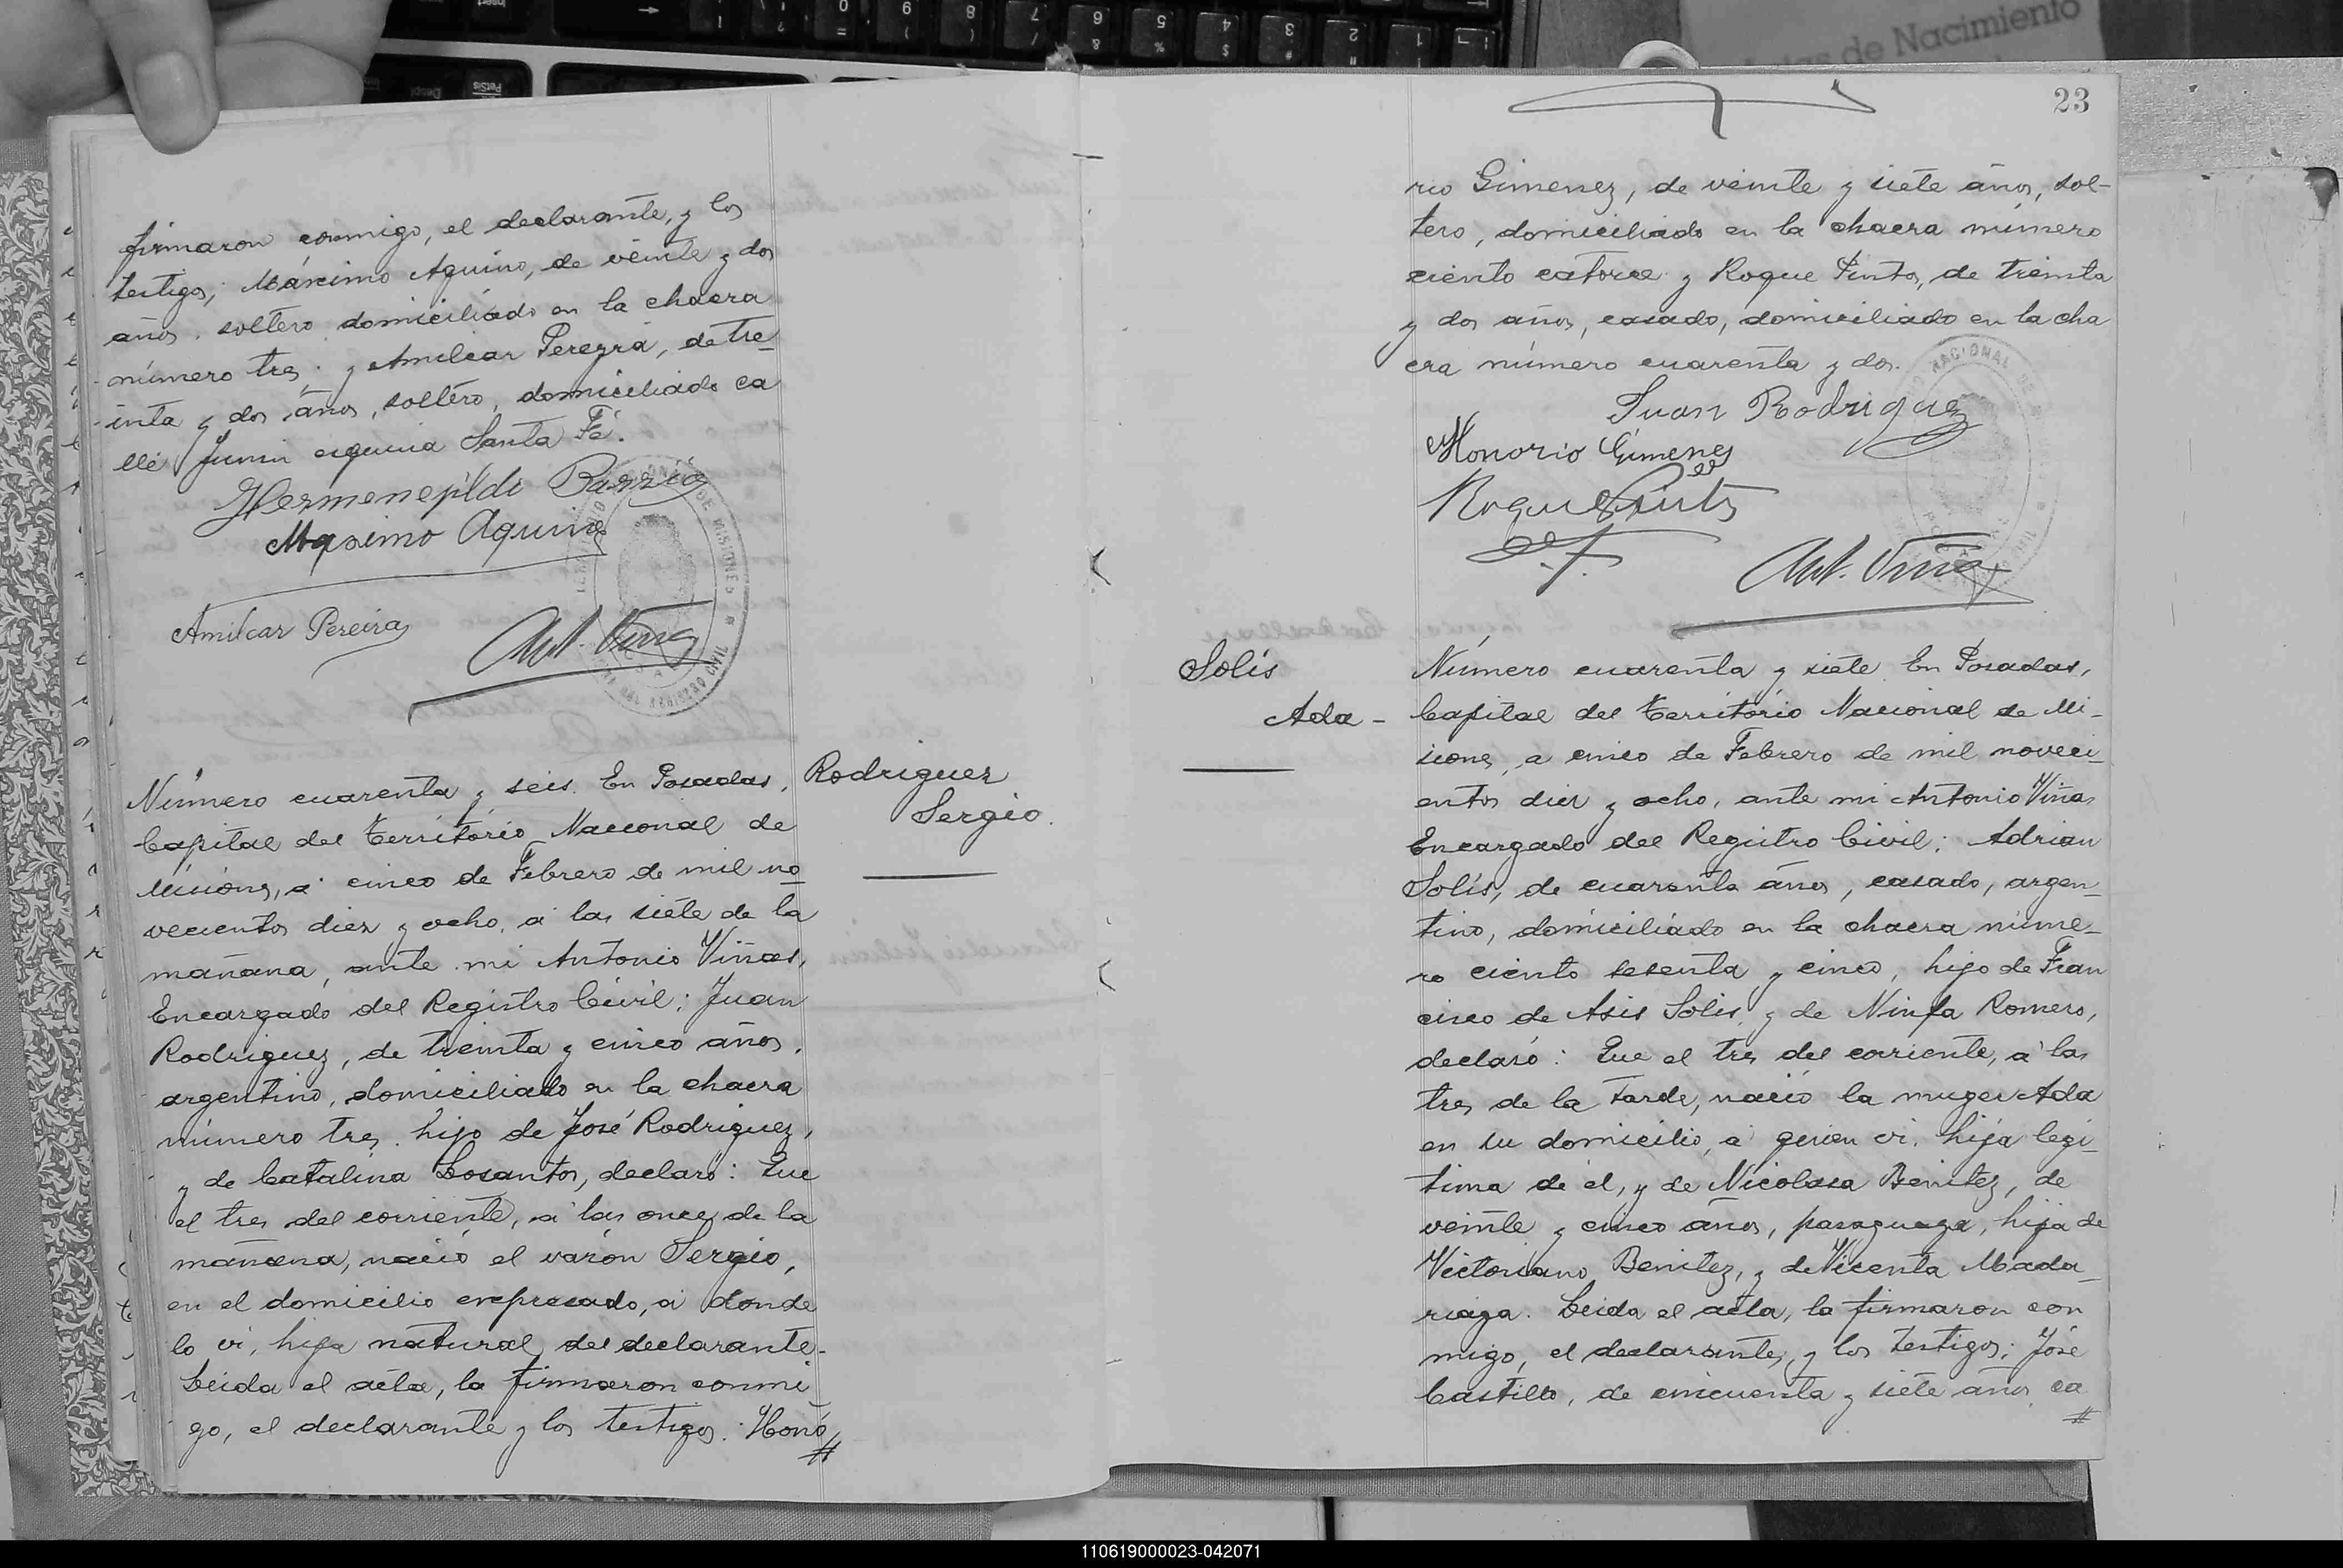 de Nacimiento
firmaron conmigo, el declarante, y los
testigos; Máximo Aquino, de veinte y dos
años, soltero domiciliado en la chacra
número tres; y Amilcar Pereyra, de tre_
inta y dos años, soltero, domiciliado ca
lle Junin esquina Santa Fé.
Máximo Aquino
Amilcar Pereira
Ant. Viñas
TERRITORIO NACIONAL DE MISIONES
REGISTRO CIVIL
Rodriguez
Sergio.
Número cuarenta y seis. En Posadas,
Capital del Territorio Nacional de
Misiones, á cinco de Febrero de mil no_
vecientos diez y ocho, á las siete de la
mañana, ante mi Antonio Viñas,
Encargado del Registro Civil; Juan
Rodriguez, de treinta y cinco años,
argentino, domiciliado en la chacra
número tres, hijo de José Rodriguez,
y de Catalina Losantos, declaró: Que
el tres del corriente, á las once de la
mañana, nació el varón Sergio,
en el domicilio expresado, á donde
lo vi, hijo natural del declarante.
Leida el acta, la firmaron conmi
go, el declarante y los testigos: Hono
#
23
rio Gimenez, de veinte y siete años, sol-
tero, domiciliado en la chacra número
ciento catorce y Roque Pinto, de treinta
y dos años, casado, domiciliado en la cha
cra número cuarenta y dos.
Juan Rodriguez
Honorio Gimenez
Roque Pinto
Ant. Viñas
Solís
Ada -
Número cuarenta y siete. En Posadas,
Capital del Territorio Nacional de Mi_
siones, a cinco de Febrero de mil noveci_
entos diez y ocho, ante mi Antonio Viñas
Encargado del Registro Civil; Adrian
Solís, de cuarenta años, casado, argen_
tino, domiciliado en la chacra núme_
ro ciento sesenta y cinco, hijo de Fran
cisco de Asis Solis, y de Ninfa Romero,
declaró: Que el tres del corriente, á las
tres de la tarde, nació la muger Ada
en su domicilio, á quien vi, hija legi_
tima de él, y de Nicolasa Benitez, de
veinte y cinco años, paraguaya, hija de
Victoriano Benitez, y de Vicenta Mada_
riaga. Leida el acta, la firmaron con
migo, el declarante, y los testigos; José
Castillo, de cincuenta y siete años, ca
#
110619000023-042071